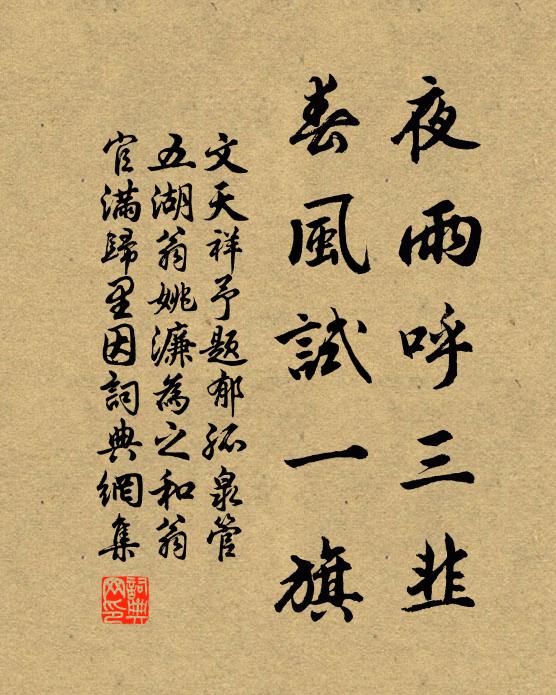 夜雨呼三韭
春風試一旗
文天祥予題郁孤泉管
五湖翁姚濂為之和翁
官滿歸里因詞典網集
詞典网印